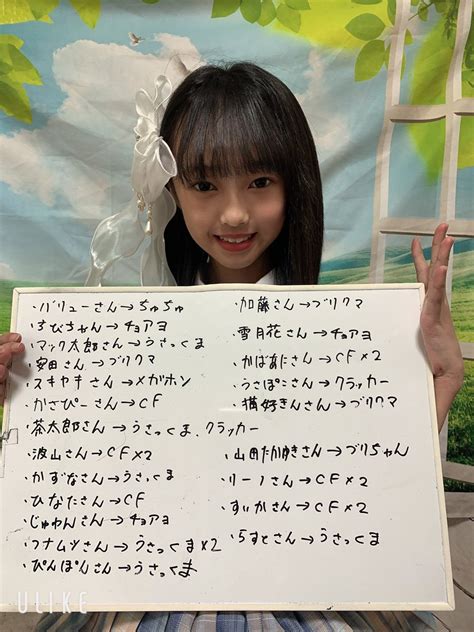 ・バリューさん→ちゅちゅ
・ちびちゃん→チョアヨ
・マック太郎さん→うさっくま
・安田さん→ブリクマ
・スキヤキさん→メガホン
・かさぴーさん→CF
・茶太郎さん→うさっくま、クラッカー
・波山さん→CF×2
・かずなさん→うさっくま
・ひなたさん→CF
・じゅわんさん→チョアヨ
・フナムシさん→うさっくま×2
・ぴんぽんさん→うさっくま
・加藤さん→ブリクマ
・雪月花さん→チョアヨ
・かばあにさん→CF×2
・うさぽこさん→クラッカー
・猫好きんさん→ブリクマ
・山田たかゆきさん→ブリちゃん
・リーノさん→CF×2
・すいかさん→CF×2
・らすとさん→うさっくま
ULIKE